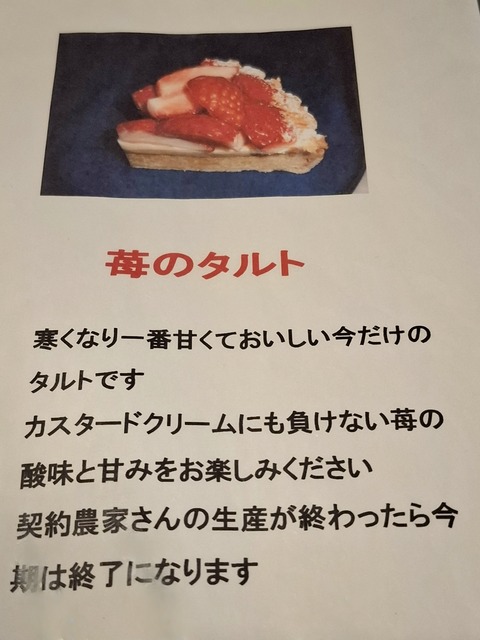 苺のタルト
寒くなり一番甘くておいしい今だけの
タルトです
カスタードクリームにも負けない苺の
酸味と甘みをお楽しみください
契約農家さんの生産が終わったら今
期は終了になります